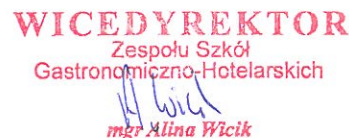 WICEDYREKTOR
Zespołu Szkół
Gastronomiczno-Hotelarskich
mgr Alina Wicik